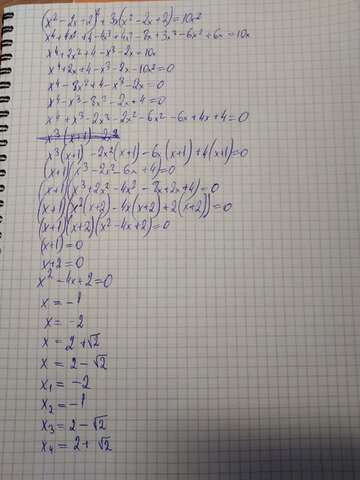 (x² - 2x + 2)² + 3x(x² - 2x + 2) = 10x²
x⁴ + 4x² + 4 - 4x³ + 4x² - 8x + 3x³ - 6x² + 6x = 10x
x⁴ + 2x² + 4 - x³ - 2x = 10x
x⁴ + 2x + 4 - x³ - 2x - 10x² = 0
x⁴ - 8x² + 4 - x³ - 2x = 0
x⁴ - x³ - 8x² - 2x + 4 = 0
x⁴ + x³ - 2x³ - 2x² - 6x² - 6x + 4x + 4 = 0
x³(x+1) - 2x²
x³(x+1) - 2x²(x+1) - 6x(x+1) + 4(x+1) = 0
(x+1)(x³ - 2x² - 6x + 4) = 0
(x+1)(x³ + 2x² - 4x² - 8x + 2x + 4) = 0
(x+1)(x²(x+2) - 4x(x+2) + 2(x+2)) = 0
(x+1)(x+2)(x² - 4x + 2) = 0
(x+1) = 0
x+2 = 0
x² - 4x + 2 = 0
x = -1
x = -2
x = 2 + √2
x = 2 - √2
x₁ = -2
x₂ = -1
x₃ = 2 - √2
x₄ = 2 + √2